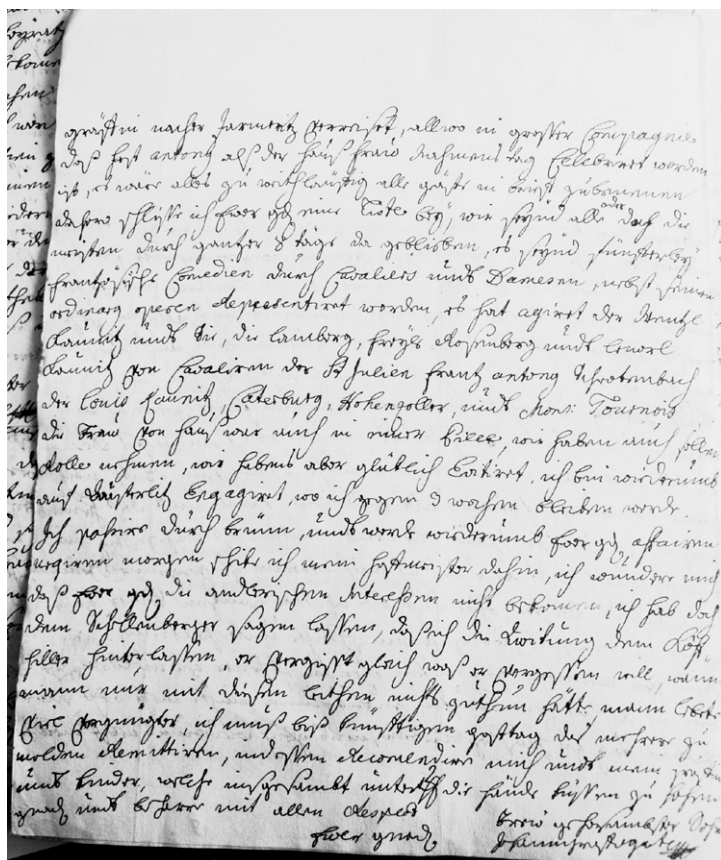 gräffin nacher Jarmeritz verreiset, allwo in grosser Compagnie
daß fest antony alß der hauß fraw Nahmens tag Celebriret worden
ist, es wäre alles zu weithläuffig alle gäste in brieff zubenenen
dahero schlisse ich Ewer gd eine liste bey, wir seynd alle oder doch die
meisten durch gantzer 8 täge da geblieben, es seynd fünfferley
frantzösische Comedien durch Cavaliers undt Damesen, nebst seinen
ordinary operen Representiret worden, es hat agiret der Wentzl
Kaunitz undt Sie, die lamberg, freyle Rosenberg undt lenorl
Kaunitz von Cavaliren der St Julien frantz antony Schrotenbach
der Louis Kaunitz, Caterburg, Hohenzoller, undt Mons: Tournois
die fraw von hauß war auch in einer, wir haben auch sollen
Rolle nehmen, wir habens aber glüklich evitiret, ich bin wiederumb
auf Austerlitz Engagiret, wo ich gegen 3 wochen bleiben werde.
Ich passire durch brünn, undt werde wiederumb Ewer gd affairen
morgen schike ich mein hoffmeister dahin, ich wundere mich
daß Ewer gd die andlerischen Interessen nicht bekomen, ich hab doch
dem Schellenberger sagen lassen, daß ich die Quitung dem
hiller hinterlassen, er vergisst gleich waß er vergessen will, wann
mann nur mit diesen leithen nichts zuthun hätte mann lebete
viel vergnügter, ich muß biß künfftigen posttag das mehrere zu
melden Remittiren, indessen Recomendire mich undt mein
undt kinder, welche insgesambt die hände küssen zu
gnad undt beharre mit allen Respect
Ewer gnad
trew gehorsambster Sohn